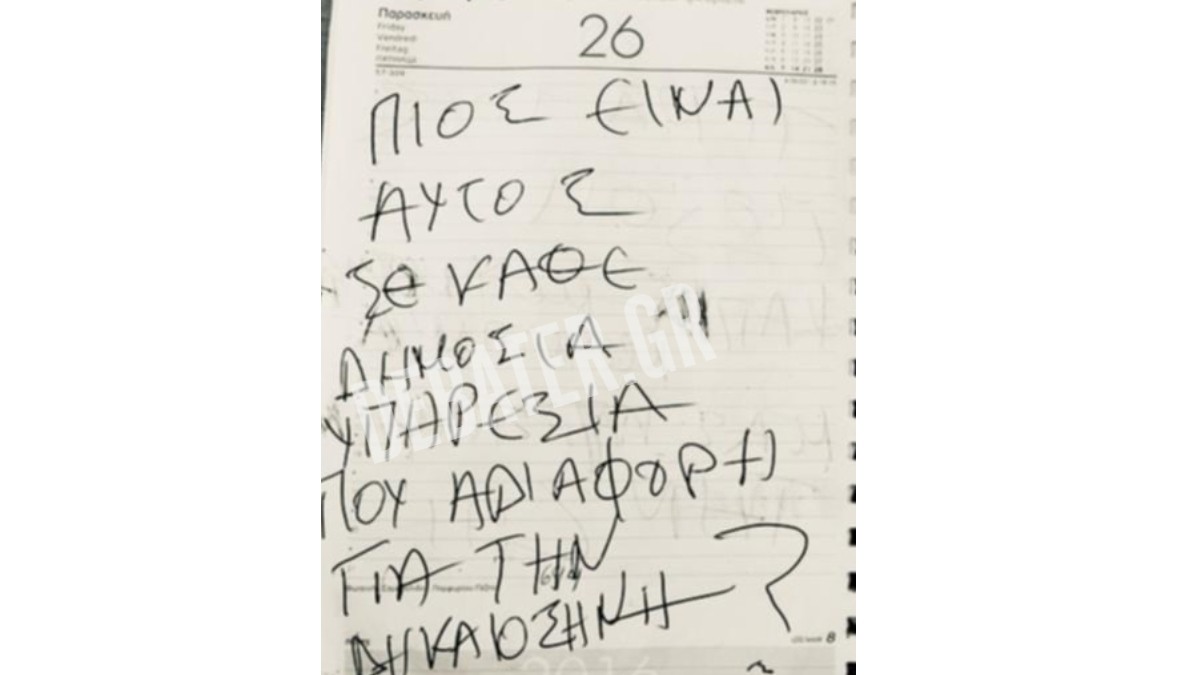 Παρασκευή
Friday
Vendredi
Freitag
26
ΠΙΟΣ ΕΙΝΑΙ
ΑΥΤΟΣ
ΣΕ ΚΑΘΕ
ΔΗΜΟΣΙΑ
ΥΠΑΡΕΣΙΑ
ΠΟΥ ΑΔΙΑΦΟΡΗ
ΓΙΑ ΤΗΝ
ΔΙΚΑΙΟΣΗΝΗ ?
8
2016